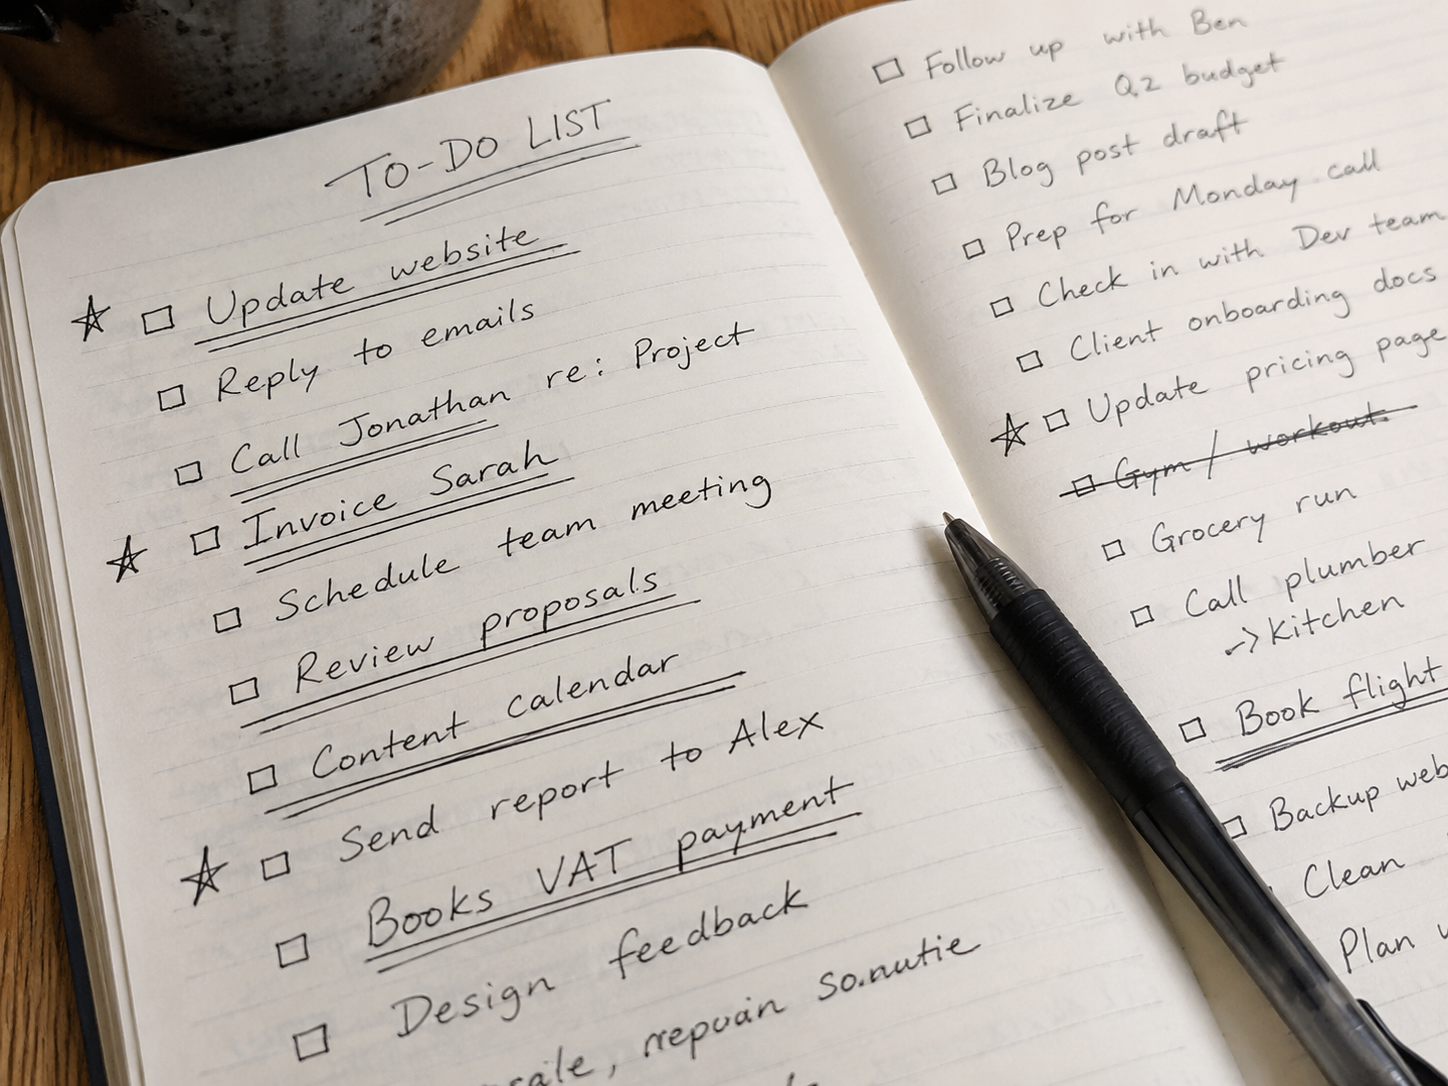 TO-DO LIST
☆ □ Update website
□ Reply to emails
□ Call Jonathan re: Project
☆ □ Invoice Sarah
□ Schedule team meeting
□ Review proposals
□ Content calendar
☆ □ Send report to Alex
□ Books VAT payment
□ Design feedback
□ Follow up with Ben
□ Finalize Q2 budget
□ Blog post draft
□ Prep for Monday call
□ Check in with Dev team
□ Client onboarding docs
☆ □ Update pricing page
□ Gym / workout
□ Grocery run
□ Call plumber
-> Kitchen
□ Book flight
□ Backup web
Clean
Plan